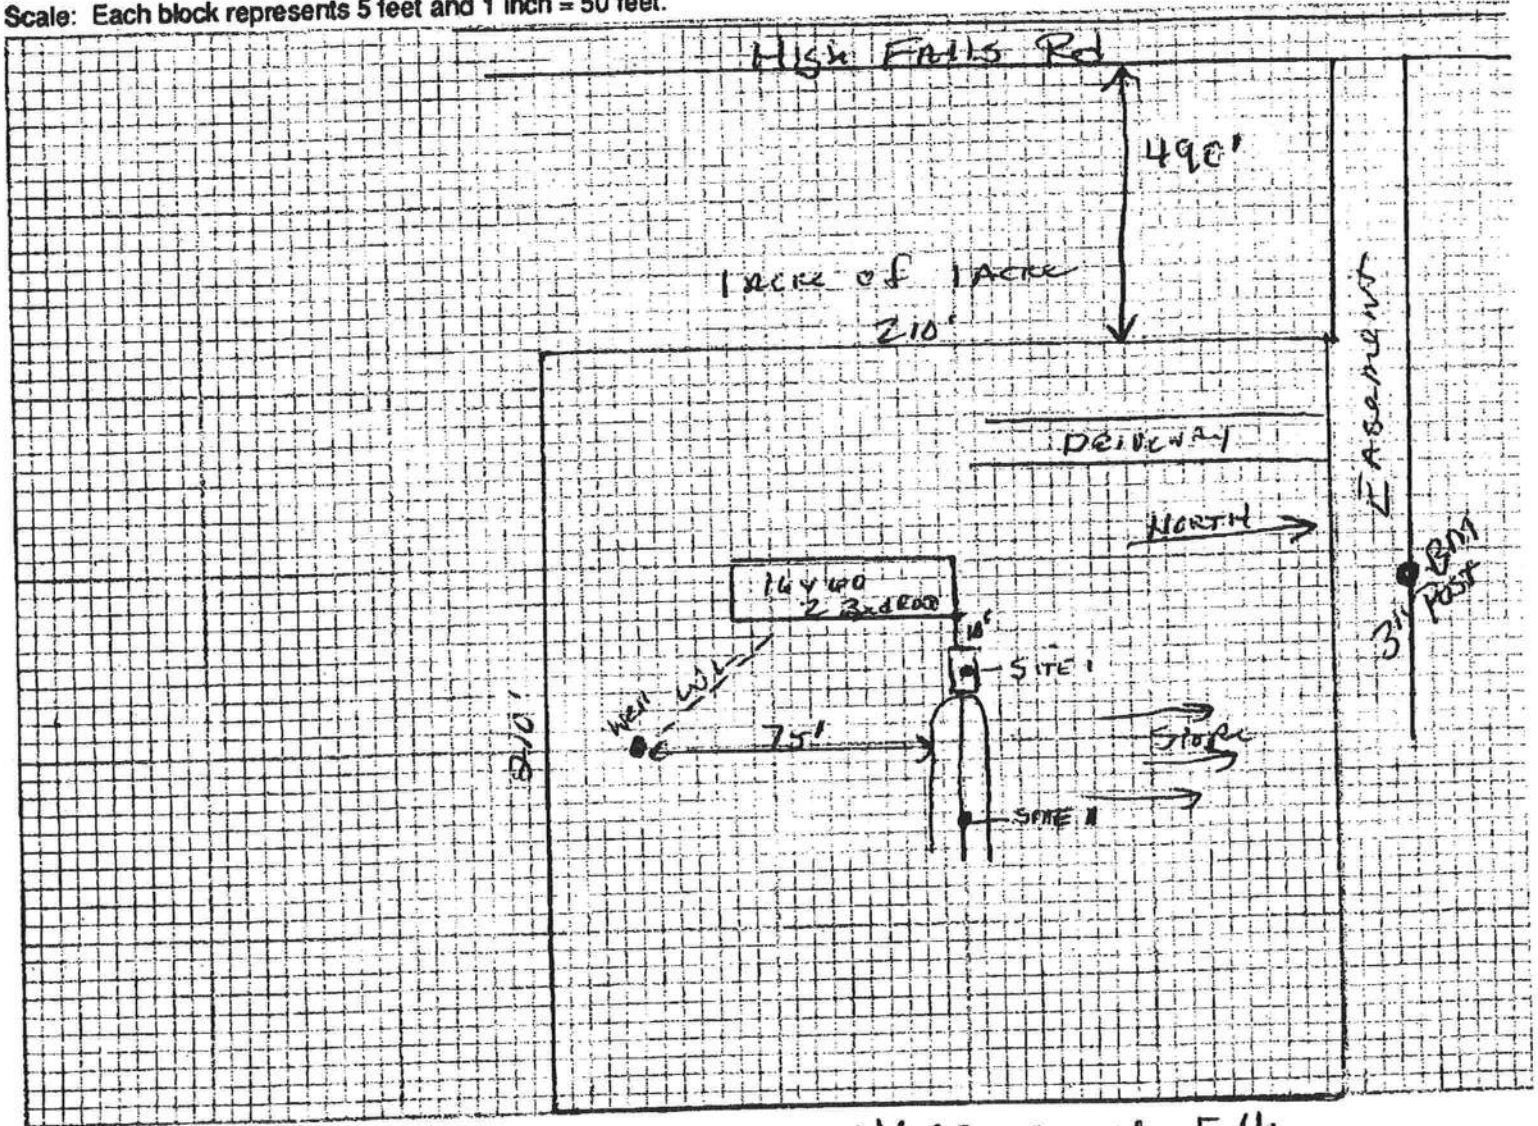 Scale: Each block represents 5 feet and 1 inch = 50 feet.
High Falls Rd
490'
1 acre of 1 Acre
210'
Easement
Driveway
North
BM
3" Post
16 x 60
2 Bedroom
10'
Site 1
Well
W.L.
75'
Slope
210'
Site II